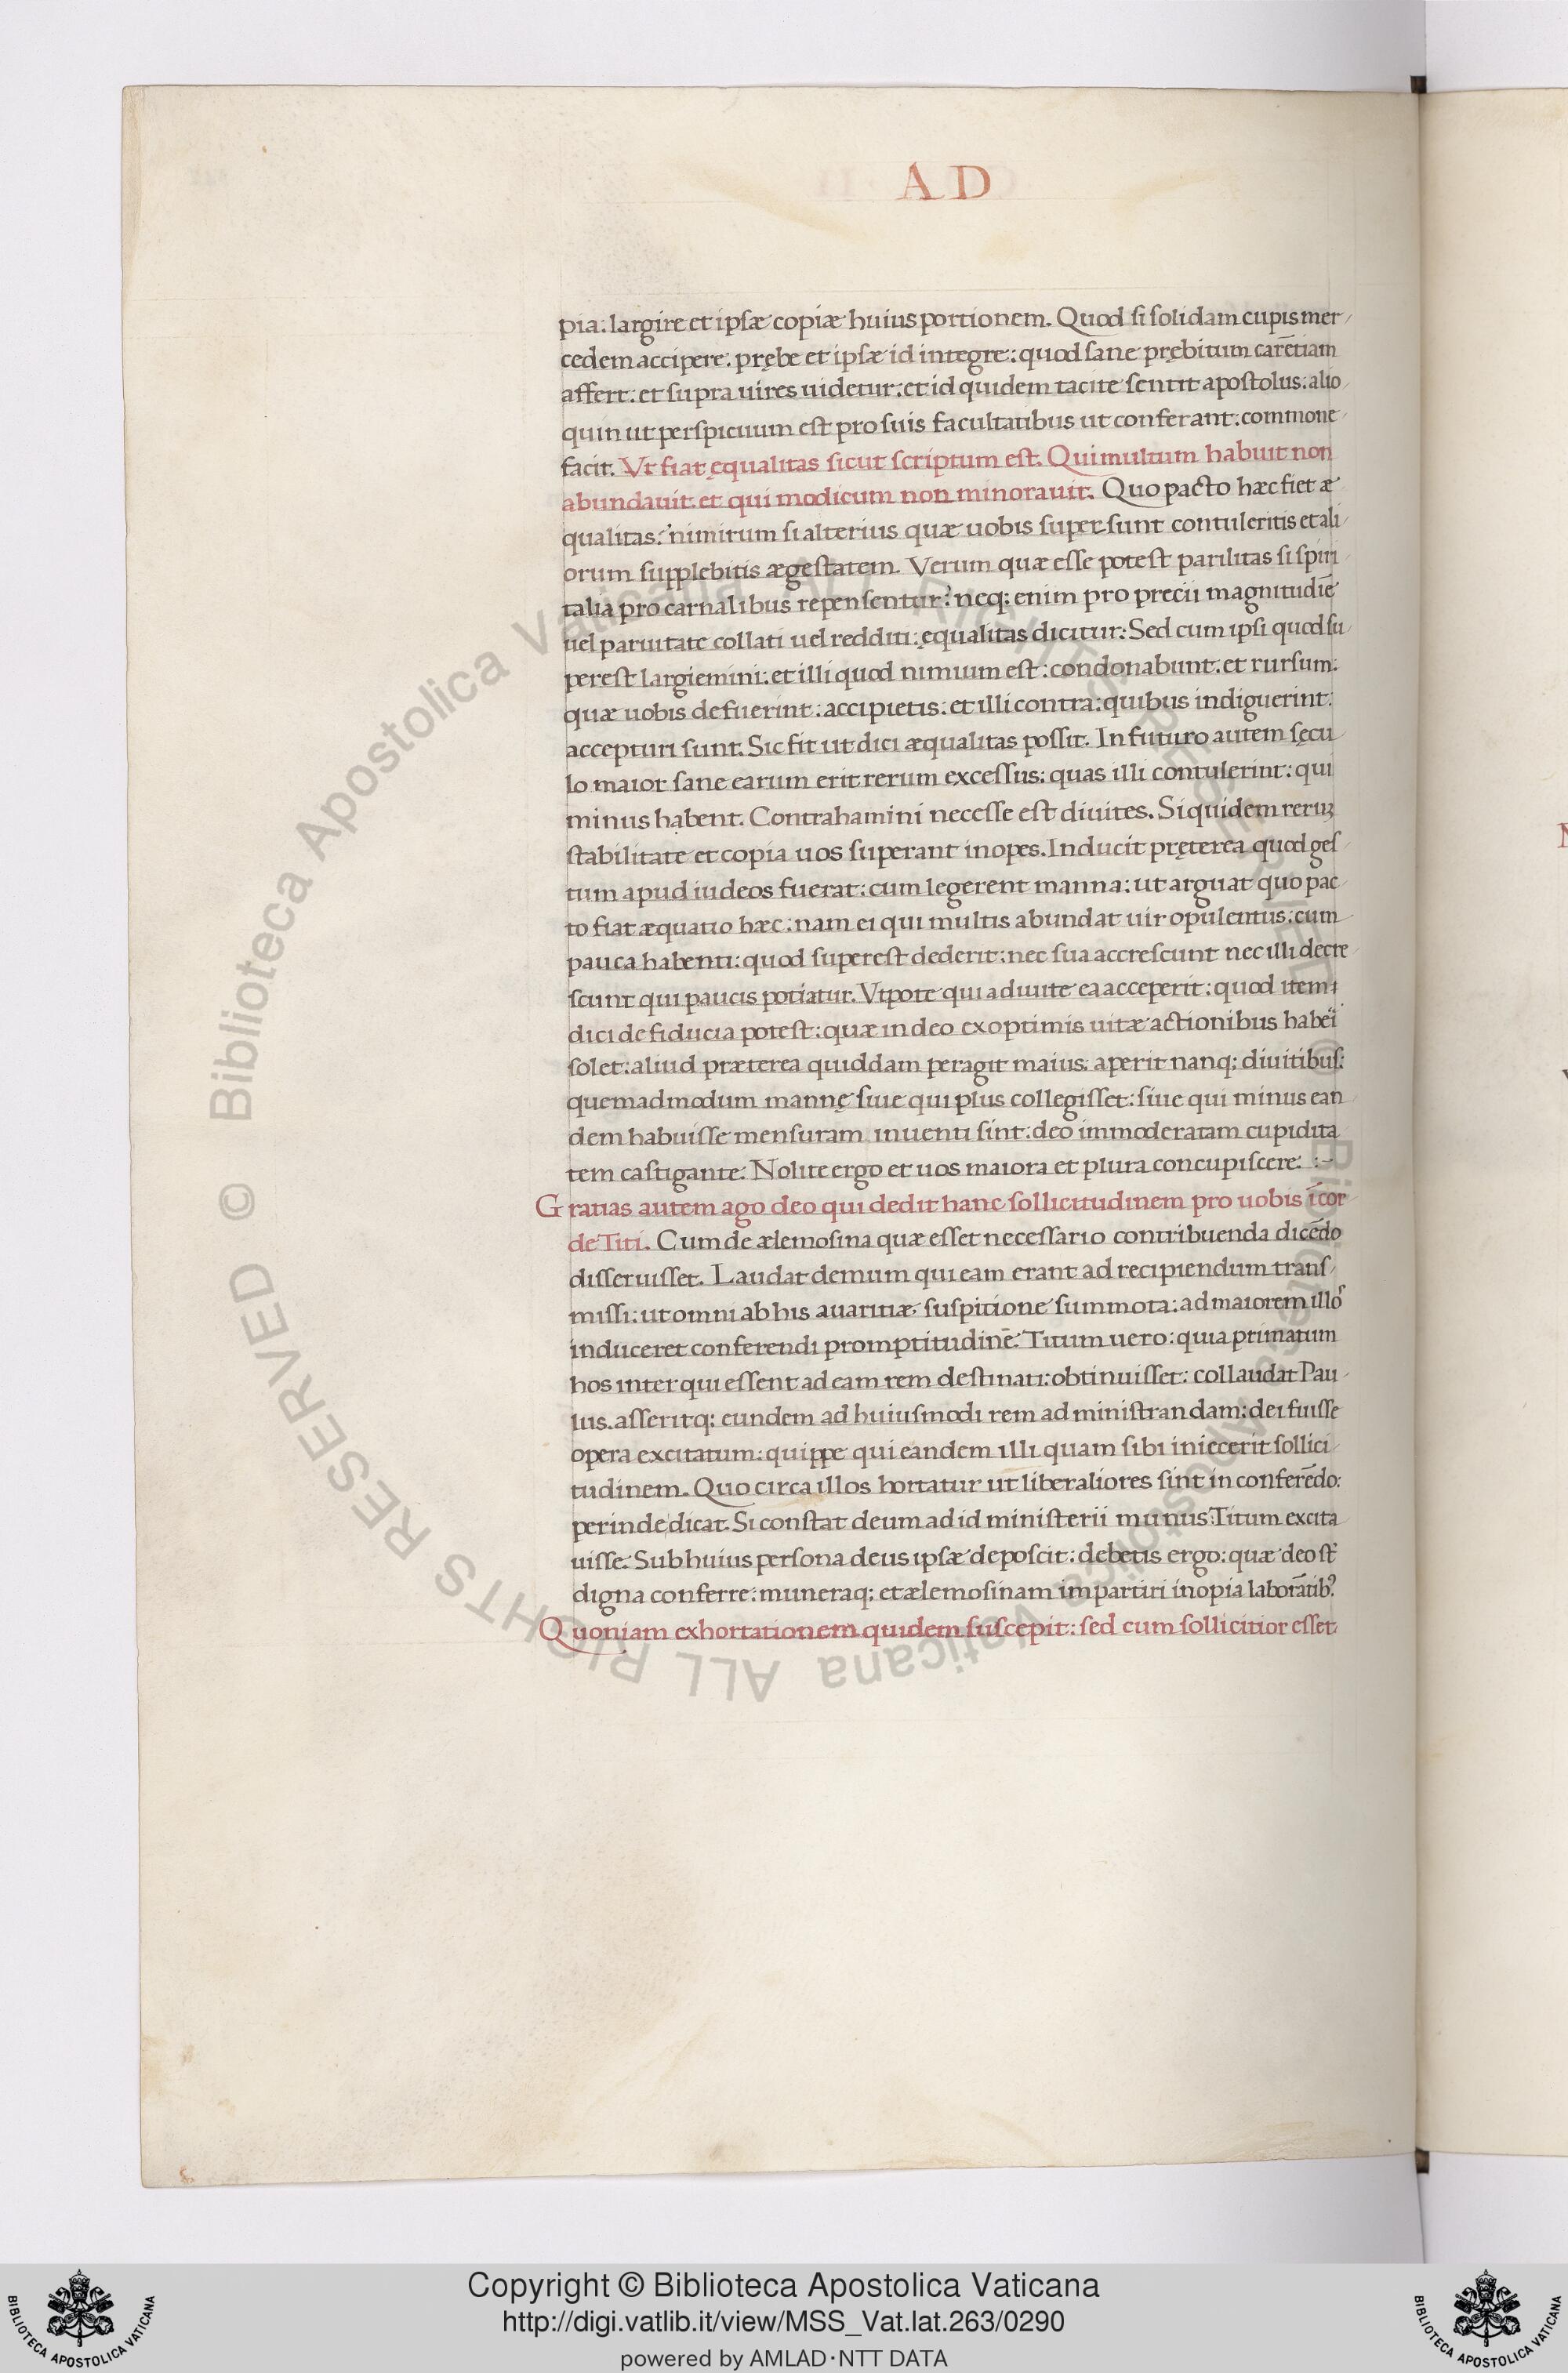 AD
pia: largire et ipsæ copiæ huius portionem. Quod si solidam cupis mer-
cedem accipere: prębe et ipsæ id integre: quod sane prębitum carẽtiam
affert: et supra uires uidetur: et id quidem tacite sentit apostolus: alio-
quin ut perspicuum est pro suis facultatibus ut conferant: commone-
facit. Vt fiat ęqualitas sicut scriptum est. Qui multum habuit non
abundauit. et qui modicum non minorauit. Quo pacto hæc fiet æ-
qualitas? nimirum si alterius quæ uobis supersunt contuleritis et ali-
orum supplebitis ægestatem. Verum quæ esse potest parilitas si spiri-
talia pro carnalibus repensentur? neq; enim pro precii magnitudiē
uel paruitate collati uel redditi: ęqualitas dicitur: Sed cum ipsi quod su-
perest largiemini: et illi quod nimium est: condonabunt. et rursum:
quæ uobis defuerint: accipietis: et illi contra: quibus indiguerint:
accepturi sunt. Sic fit ut dici æqualitas possit. In futuro autem sęcu-
lo maior sane earum erit rerum excessus: quas illi contulerint: qui
minus habent. Contrahamini necesse est diuites. Siquidem reruꝫ
stabilitate et copia uos superant inopes. Inducit pręterea quod ges-
tum apud iudeos fuerat: cum legerent manna: ut arguat quo pac-
to fiat æquatio hæc: nam ei qui multis abundat uir opulentus: cum
pauca habenti: quod superest dederit: nec sua accrescunt nec illi decre-
scunt qui paucis potiatur. Vtpote qui a diuite ea acceperit: quod item
dici de fiducia potest: quæ in deo ex optimis uitæ actionibus haberi
solet: aliud præterea quiddam peragit maius: aperit nanq; diuitibus:
quemadmodum mannę siue qui plus collegisset: siue qui minus ean-
dem habuisse mensuram inuenti sint: deo immoderatam cupidita-
tem castigante. Nolite ergo et uos maiora et plura concupiscere. :-
Gratias autem ago deo qui dedit hanc sollicitudinem pro uobis ī cor-
de Titi. Cum de ælemosina quæ esset necessario contribuenda dicēdo
disseruisset. Laudat demum qui eam erant ad recipiendum trans-
missi: ut omni ab his auaritiæ suspitione summota: ad maiorem illos
induceret conferendi promptitudinē. Titum uero: quia primatum
hos inter qui essent ad eam rem destinati: obtinuisset: collaudat Pau-
lus. asseritq; eundem ad huiusmodi rem administrandam: dei fuisse
opera excitatum: quippe qui eandem illi quam sibi iniecerit sollici-
tudinem. Quo circa illos hortatur ut liberaliores sint in conferēdo:
perinde dicat. Si constat deum ad id ministerii munus Titum excita-
uisse. Sub huius persona deus ipsæ deposcit: debetis ergo: quæ deo st̄
digna conferre: muneraq; et ælemosinam impartiri inopia laborātibꝰ.
Quoniam exhortationem quidem suscepit: sed cum sollicitior esset
© Biblioteca Apostolica Vaticana ALL RIGHTS RESERVED © Biblioteca Apostolica Vaticana ALL RIGHTS RESERVED
Copyright © Biblioteca Apostolica Vaticana
http://digi.vatlib.it/view/MSS_Vat.lat.263/0290
powered by AMLAD·NTT DATA
BIBLIOTECA APOSTOLICA VATICANA
BIBLIOTECA APOSTOLICA VATICANA